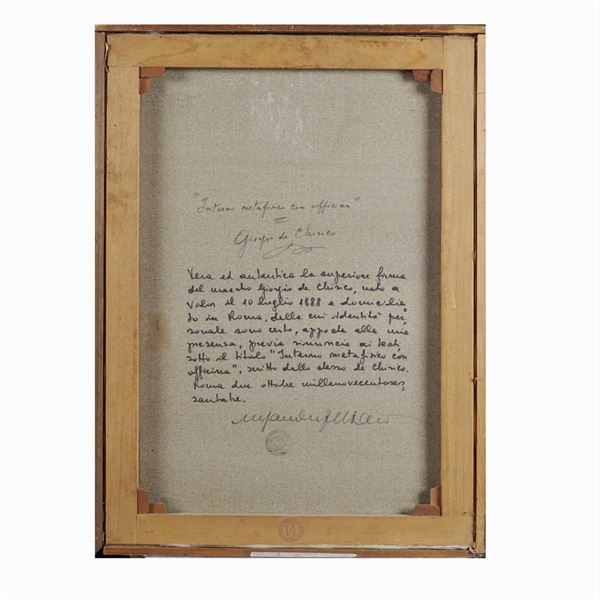 "Interno metafisico con officina"
Giorgio de Chirico
Vera ed autentica la superiore firma
del maestro Giorgio de Chirico, nato a
Volos il 10 luglio 1888 e domicilia
to in Roma, della cui identità per
sonale sono certo, apposta alla mia
presenza, previa rinuncia ai testi
sotto il titolo "Interno metafisico con
officina", scritto dallo stesso de Chirico.
Roma due ottobre millenovecentoses
santatre.